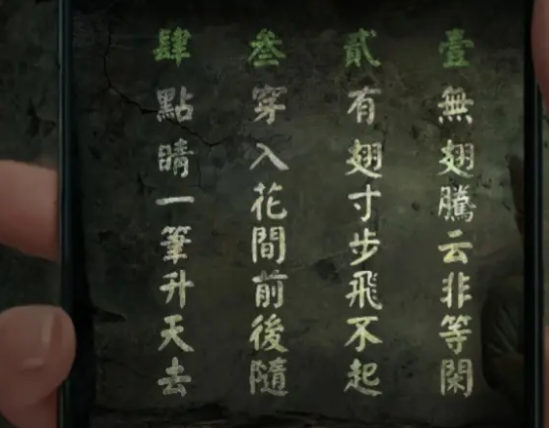 壹
無翅騰云非等閑
貳
有翅寸步飛不起
叁
穿入花間前後隨
肆
點睛一筆升天去